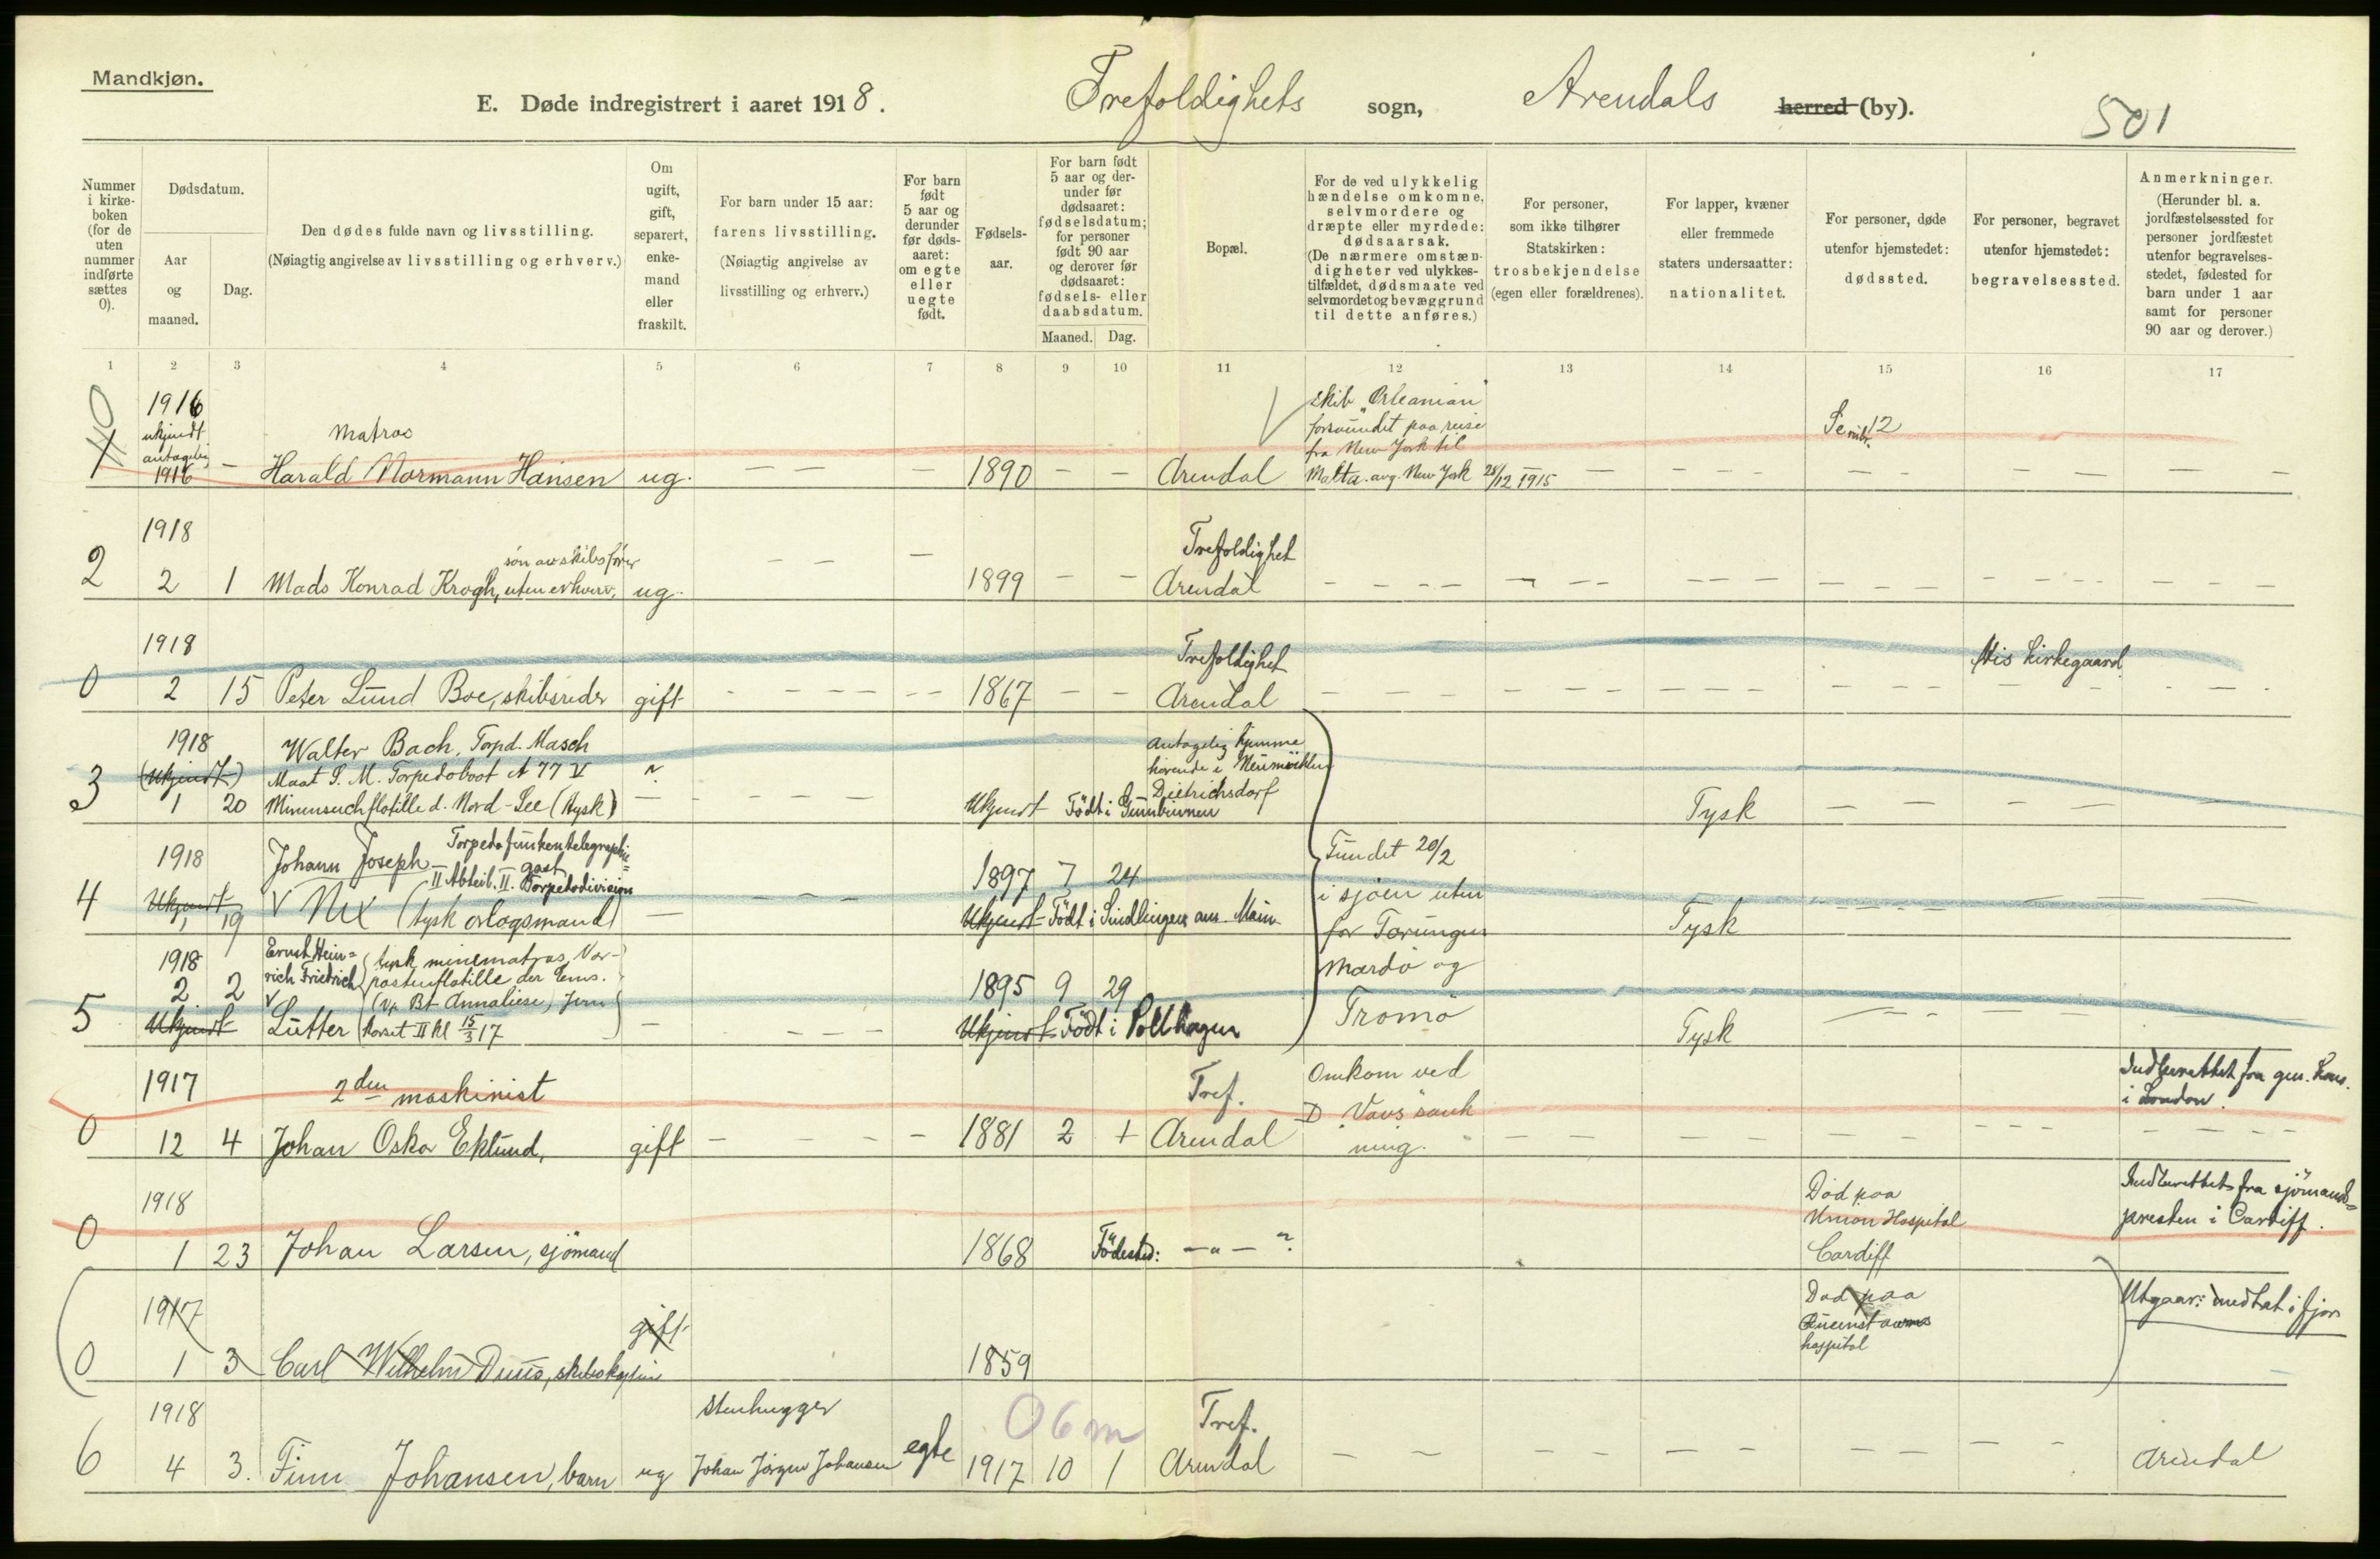 Mandkjøn.
E. Døde indregistrert i aaret 1918. Trefoldighets sogn, Arendals herred (by).
501
Nummer i kirke-boken (for de uten nummer indførte sættes 0).
Dødsdatum.
Aar og maaned.
Dag.
Den dødes fulde navn og livsstilling.
(Nøiagtig angivelse av livsstilling og erhverv.)
Om ugift, gift, separert, enke-mand eller fraskilt.
For barn under 15 aar: farens livsstilling.
(Nøiagtig angivelse av livsstilling og erhverv.)
For barn født 5 aar og derunder før døds-aaret: om egte eller uegte født.
Fødsels-aar.
For barn født 5 aar og der-under før dødsaaret: fødselsdatum; for personer født 90 aar og derover før dødsaaret: fødsels- eller daabsdatum.
Maaned. Dag.
Bopæl.
For de ved ulykkelig hændelse omkomne, selvmordere og dræpte eller myrdede: dødsaarsak.
(De nærmere omstæn-digheter ved ulykkes-tilfældet, dødsmaate ved selvmordet og bevæggrund til dette anføres.)
For personer, som ikke tilhører Statskirken: trosbekjendelse (egen eller forældrenes).
For lapper, kvæner eller fremmede staters undersaatter: nationalitet.
For personer, døde utenfor hjemstedet: dødssted.
For personer, begravet utenfor hjemstedet: begravelsessted.
Anmerkninger.
(Herunder bl. a. jordfæstelsessted for personer jordfæstet utenfor begravelses-stedet, fødested for barn under 1 aar samt for personer 90 aar og derover.)
1 2 3 4 5 6 7 8 9 10 11 12 13 14 15 16 17
1916
ukjendt antagelig 1916 – matros
Harald Normann Hansen ug. – – – 1890 – – Arendal
skib "Orleanian" forsvundet paa reise fra New York til Malta. avg. New York 28/12 1915
12
1918
2 2 1 Mads Konrad Krogh, søn av skibsfører uten erhverv, ug. – – – 1899 – – Trefoldighet Arendal
1918
0 2 15 Peter Lund Boe, skibsreder gift 1867 – – Trefoldighet Arendal
His Kirkegaard.
1918
3 (Ukjendt) 1 20 Walter Bach, Torpd. Masch
Maat S. M. Torpedoboot A 77 V
Minensuchflotille d. Nord-See (tysk) ?
Ukjendt Født i Gumbinnen
antagelig hjemmehørende i Neumühlen Dietrichsdorf
Tysk
1918
4 Ukjendt 1 19 Johann Joseph Torpedofunkentelegraphie=gast
II Abteil. II. Torpedodivision
V Nix (tysk orlogsmand)
1897 7 24
Ukjendt Født i Sindlingen am Main
Fundet 20/2 i sjøen uten for Torungen Mærdø og Tromø
Tysk
1918
5 2 2 Ukjendt Ernst Hein=rich Friedrich V Lütter
(tysk minematros, Vor-postenflotille der Ems.
(V. Bt Annaliese)
II Kl 15/3 17
1895 9 29
Ukjendt Født i Pollhagen
Tysk
1917
0 12 4 2den maskinist
Johan Oska Eklund, gift 1881 2 + Tref. Arendal
Omkom ved D "Vavs" sænkning.
Indberettet fra gen. Kons. i London.
1918
0 1 23 Johan Larsen, sjømand 1868 Fødested: –"– ?
Død paa Union Hospital Cardiff
Indberettet fra sjømands=presten i Cardiff.
1917
0 1 3 Carl Wilhelm Duus, skibskaptein gift 1859
Død paa Queenstowns hospital
Utgaar: medtat i fjor
1918
6 4 3. Finn Johansen, barn ug stenhugger
Johan Jörgen Johansen egte 1917 10 1 Tref. Arendal
0 6 m
Arendal